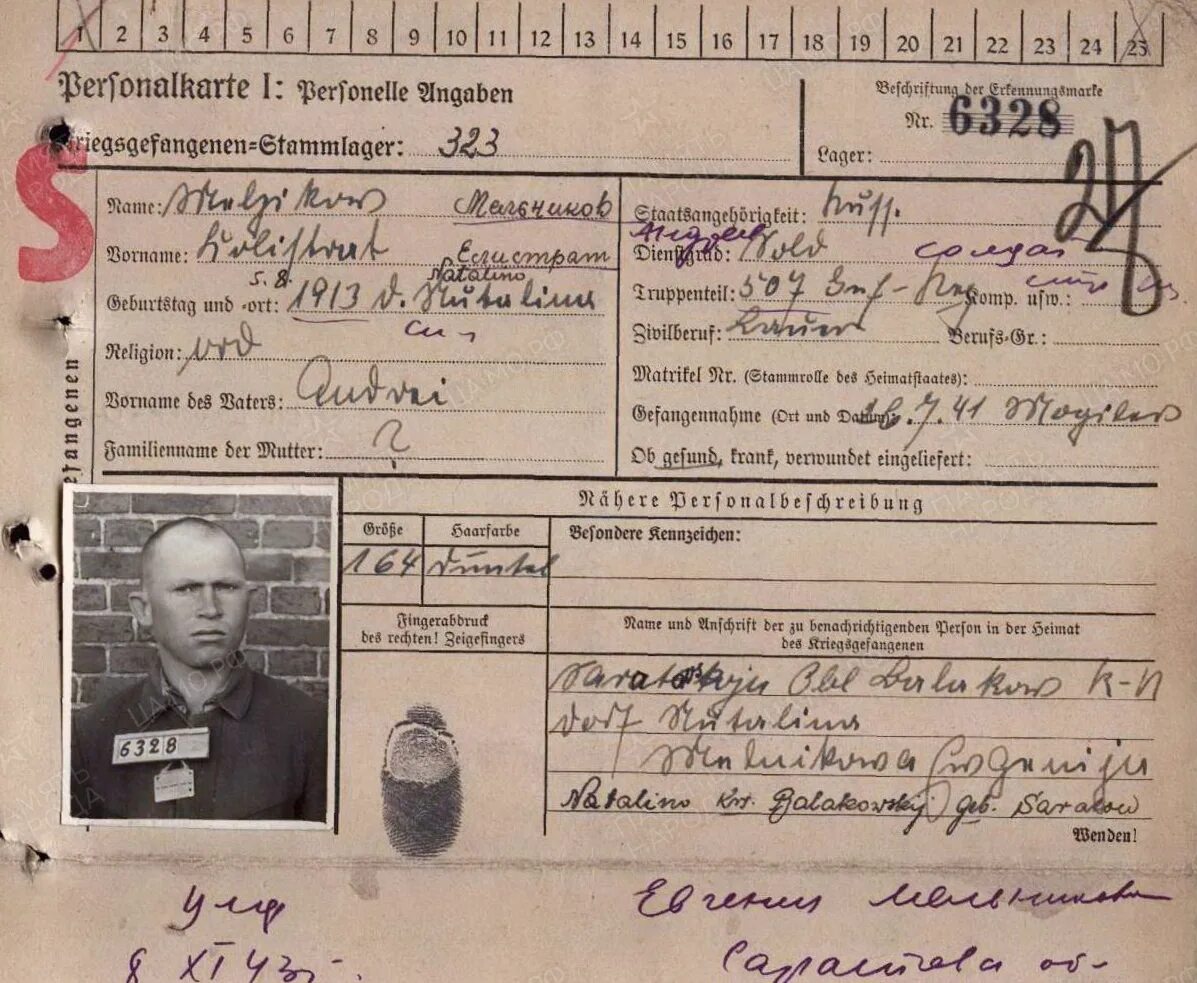 1 2 3 4 5 6 7 8 9 10 11 12 13 14 15 16 17 18 19 20 21 22 23 24 25
Personalkarte I: Personelle Angaben
Kriegsgefangenen-Stammlager: 323
Beschriftung der Erkennungsmarke
Nr. 6328
Lager:
S
Name: Мельчиков
Vorname: Естистрат
5.8. Natalino
Geburtstag und -ort: 1913 d. Natalina
Religion: ord
Vorname des Vaters: Andrei
Familienname der Mutter: ?
Staatsangehörigkeit: Russ.
Dienstgrad: Sold солдат
Truppenteil: 507 Inf-Reg Komp. usw.:
Zivilberuf: Bauer Berufs-Gr.:
Matrikel Nr. (Stammrolle des Heimatstaates):
Gefangennahme (Ort und Datum): 26.7.41 Mogilew
Ob gesund, krank, verwundet eingeliefert:
Nähere Personalbeschreibung
Größe Haarfarbe Besondere Kennzeichen:
164 dunkel
Fingerabdruck
des rechten! Zeigefingers
Name und Anschrift der zu benachrichtigenden Person in der Heimat
des Kriegsgefangenen
Saratowskaja Obl Balakow R-N
dorf Natalina
Melnikowa Ewgenija
Natalino Krs. Balakowskij geb. Saratow
Wenden!
6328
Евгения Мельникова
8 XI 43г.